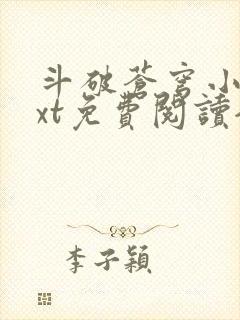 斗破蒼穹小
xt免費閱讀
李子穎